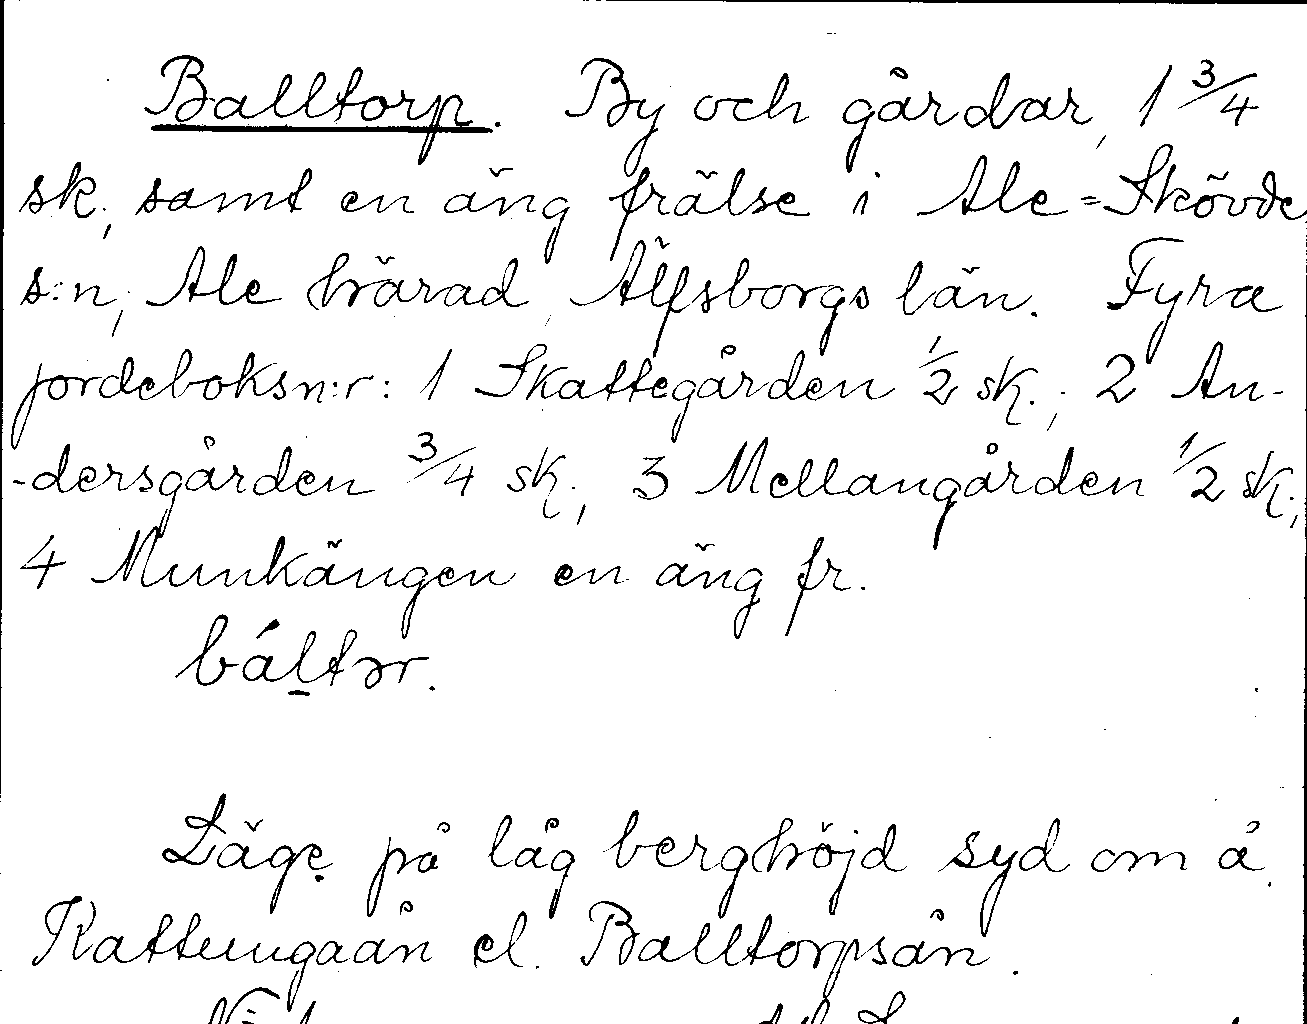 Balltorp. By och gårdar, 1 3/4
sk., samt en äng frälse i Ale=Skövde
s:n, Ale härad, Älfsborgs län. Fyra
jordeboksn:r: 1 Skattegården 1/2 sk.; 2 An-
-dersgården 3/4 sk., 3 Mellangården 1/2 sk.;
4 Munkängen en äng fr.
báltər.
Läge på låg berghöjd syd om å.
Kattungaån el. Balltorpsån.